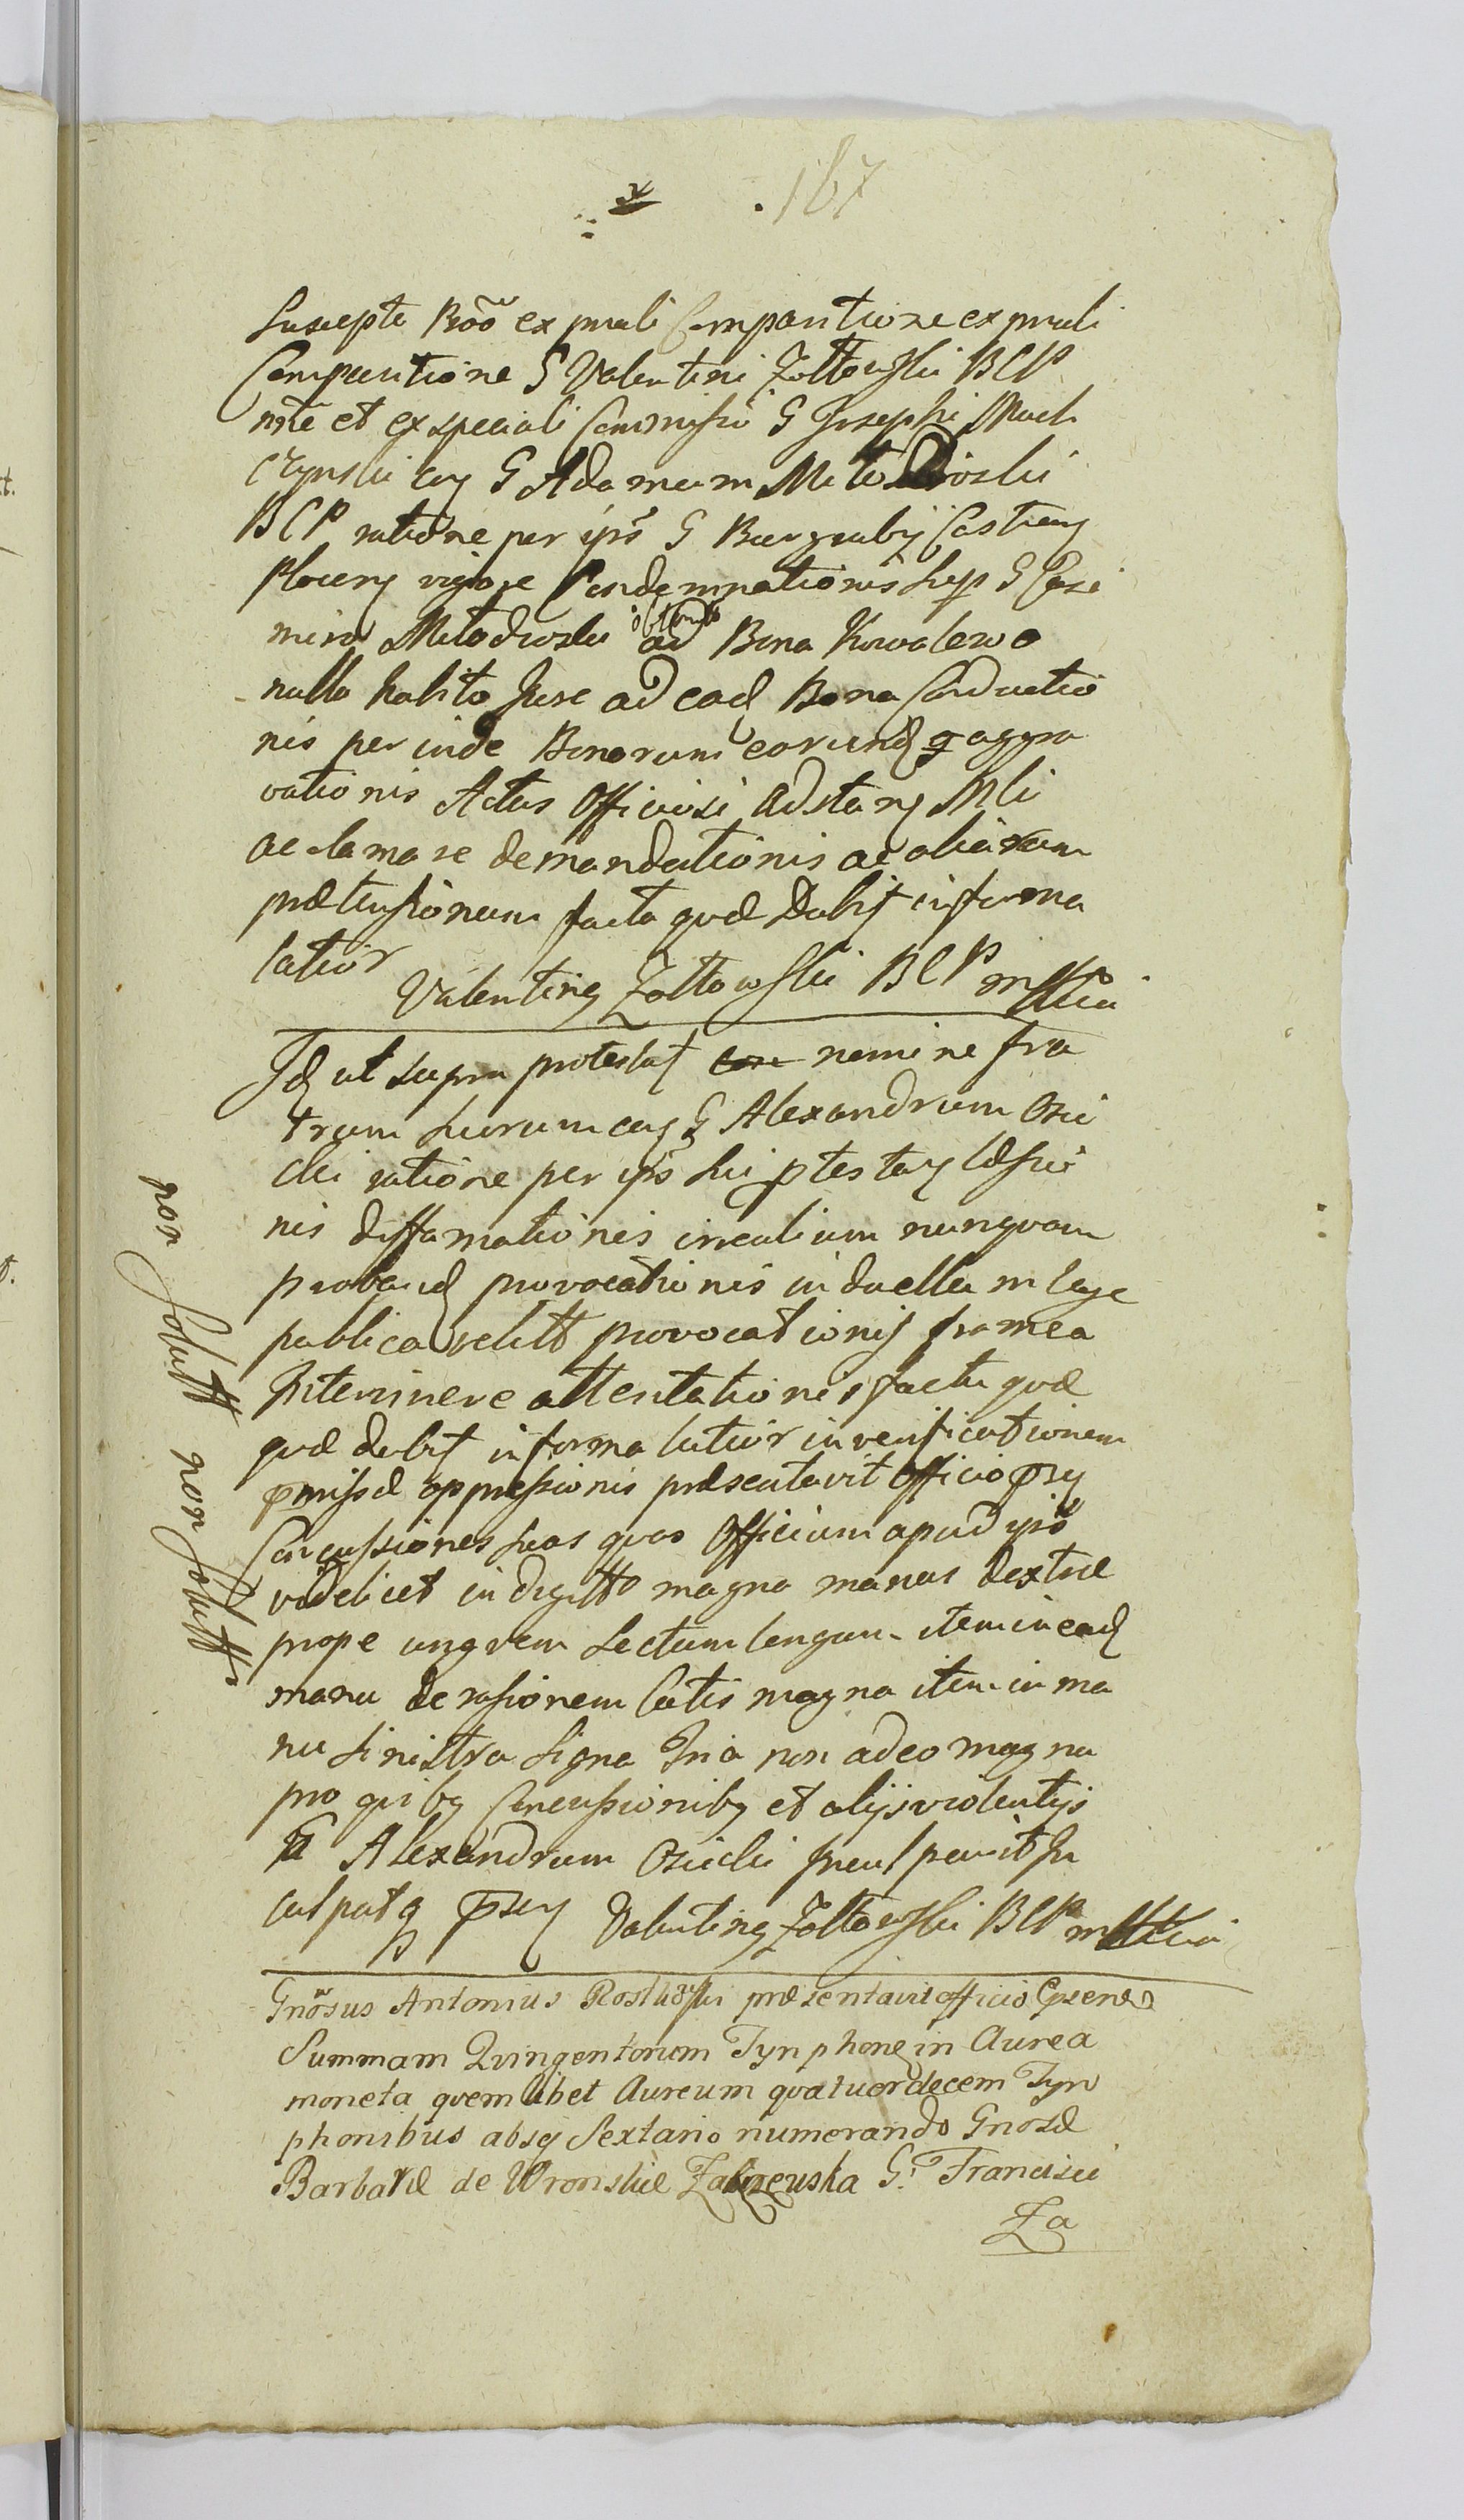 167
Suscepta Rõõ ex pnali Comparitione ex pnali
Comparitione G Valentini Zołtowski BCP
nñe et ex speciali Commissio G Josephi Much
czynski coñ G Adamum Młodzioski
BCP ratione per ips G Burgrabij Castreñ
Plocen vigore Condemnationis sup G Casi
miro Młodzioski ad Bona Kowalewo
nullo habito Jure ad ead Bona Conductio
nis per inde Bonorum eorund aggra
vationis Actus Officiosi ad stan Mli
ac lamare demandationis ac aliarum
prætensionum facta quæ Dabit in forma
latior
Valentin9 Zołtowski BCP mpria
Id ut supra protestat nomine fra
trum suorum con G Alexandrum Osie
cki ratione per ips sui ptestan læsio
nis diffamationis inculium nunquam
proband provocationis in duellum lege
publica vetitt provocationis framea
Interimere attentationis facta quæ
quæ dabit in forma latior in verificationem
pmissæ oppressionis præsentavit officio psn
Concussiones suas quas Officium apud ips
videlicet in digitto magno manus dextræ
prope unguem sectum longum item in ead
manu derasionem satis magna item in ma
nu sinistra signa tria non adeo magna
pro quib9 Concussionib9 et alijs violentijs
G Alexandrum Osiecki inculpavit In
culpatq psen Valentin9 Zołtowski BCP mpria
non solutt non solutt
Gnõsus Antonius Rostkowski præsentavit officio Cpsens
Summam Quingentorum Tynphon in Aurea
moneta quemlibet Aureum quatuordecem Tyn
phonibus absq Sextario numerando Gnosæ
Barbaræ de Wronskie Zakrzewska G. Francisci
Za